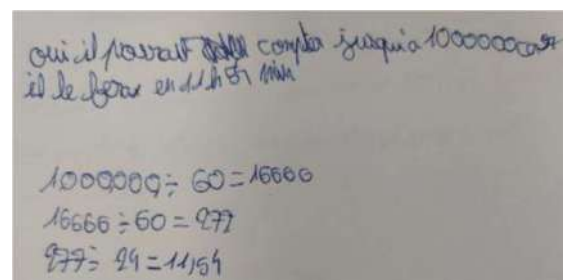 oui il pourrait compter jusqu'a 1000000 car
il le feras en 11h 51 min
1000000 ÷ 60 = 16666
16666 ÷ 60 = 277
277 ÷ 24 = 11,54